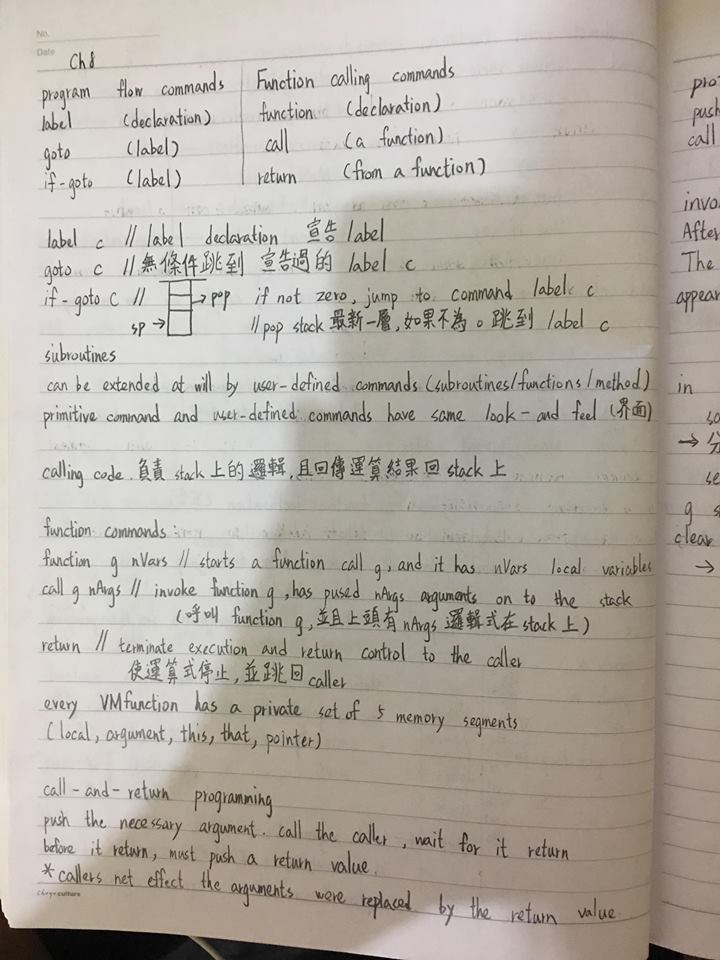 No.
Date
Ch8
program flow commands Function calling commands
label (declaration) function (declaration)
goto (label) call (a function)
if-goto (label) return (from a function)
label c // label declaration 宣告 label
goto c // 無條件跳到 宣告過的 label c
if-goto c // pop if not zero, jump to command label c
sp // pop stack 最新一層, 如果不為0 跳到 label c
subroutines
can be extended at will by user-defined commands (subroutines/functions/method)
primitive command and user-defined commands have same look-and feel (界面)
calling code. 負責 stack 上的邏輯, 且回傳運算結果回 stack 上
function commands:
function g nVars // starts a function call g, and it has nVars local variables
call g nArgs // invoke function g, has pused nArgs arguments on to the stack
(呼叫 function g, 並且上頭有 nArgs 邏輯式在 stack 上)
return // terminate execution and return control to the caller
使運算式停止, 並跳回 caller
every VMfunction has a private set of 5 memory segments
(local, argument, this, that, pointer)
call-and-return programming
push the necessary argument. call the caller, wait for it return
before it return, must push a return value.
*callers net effect the arguments were replaced by the return value
push
call
invo
After
The
appear
in
→ 分
se
g s
clear
→